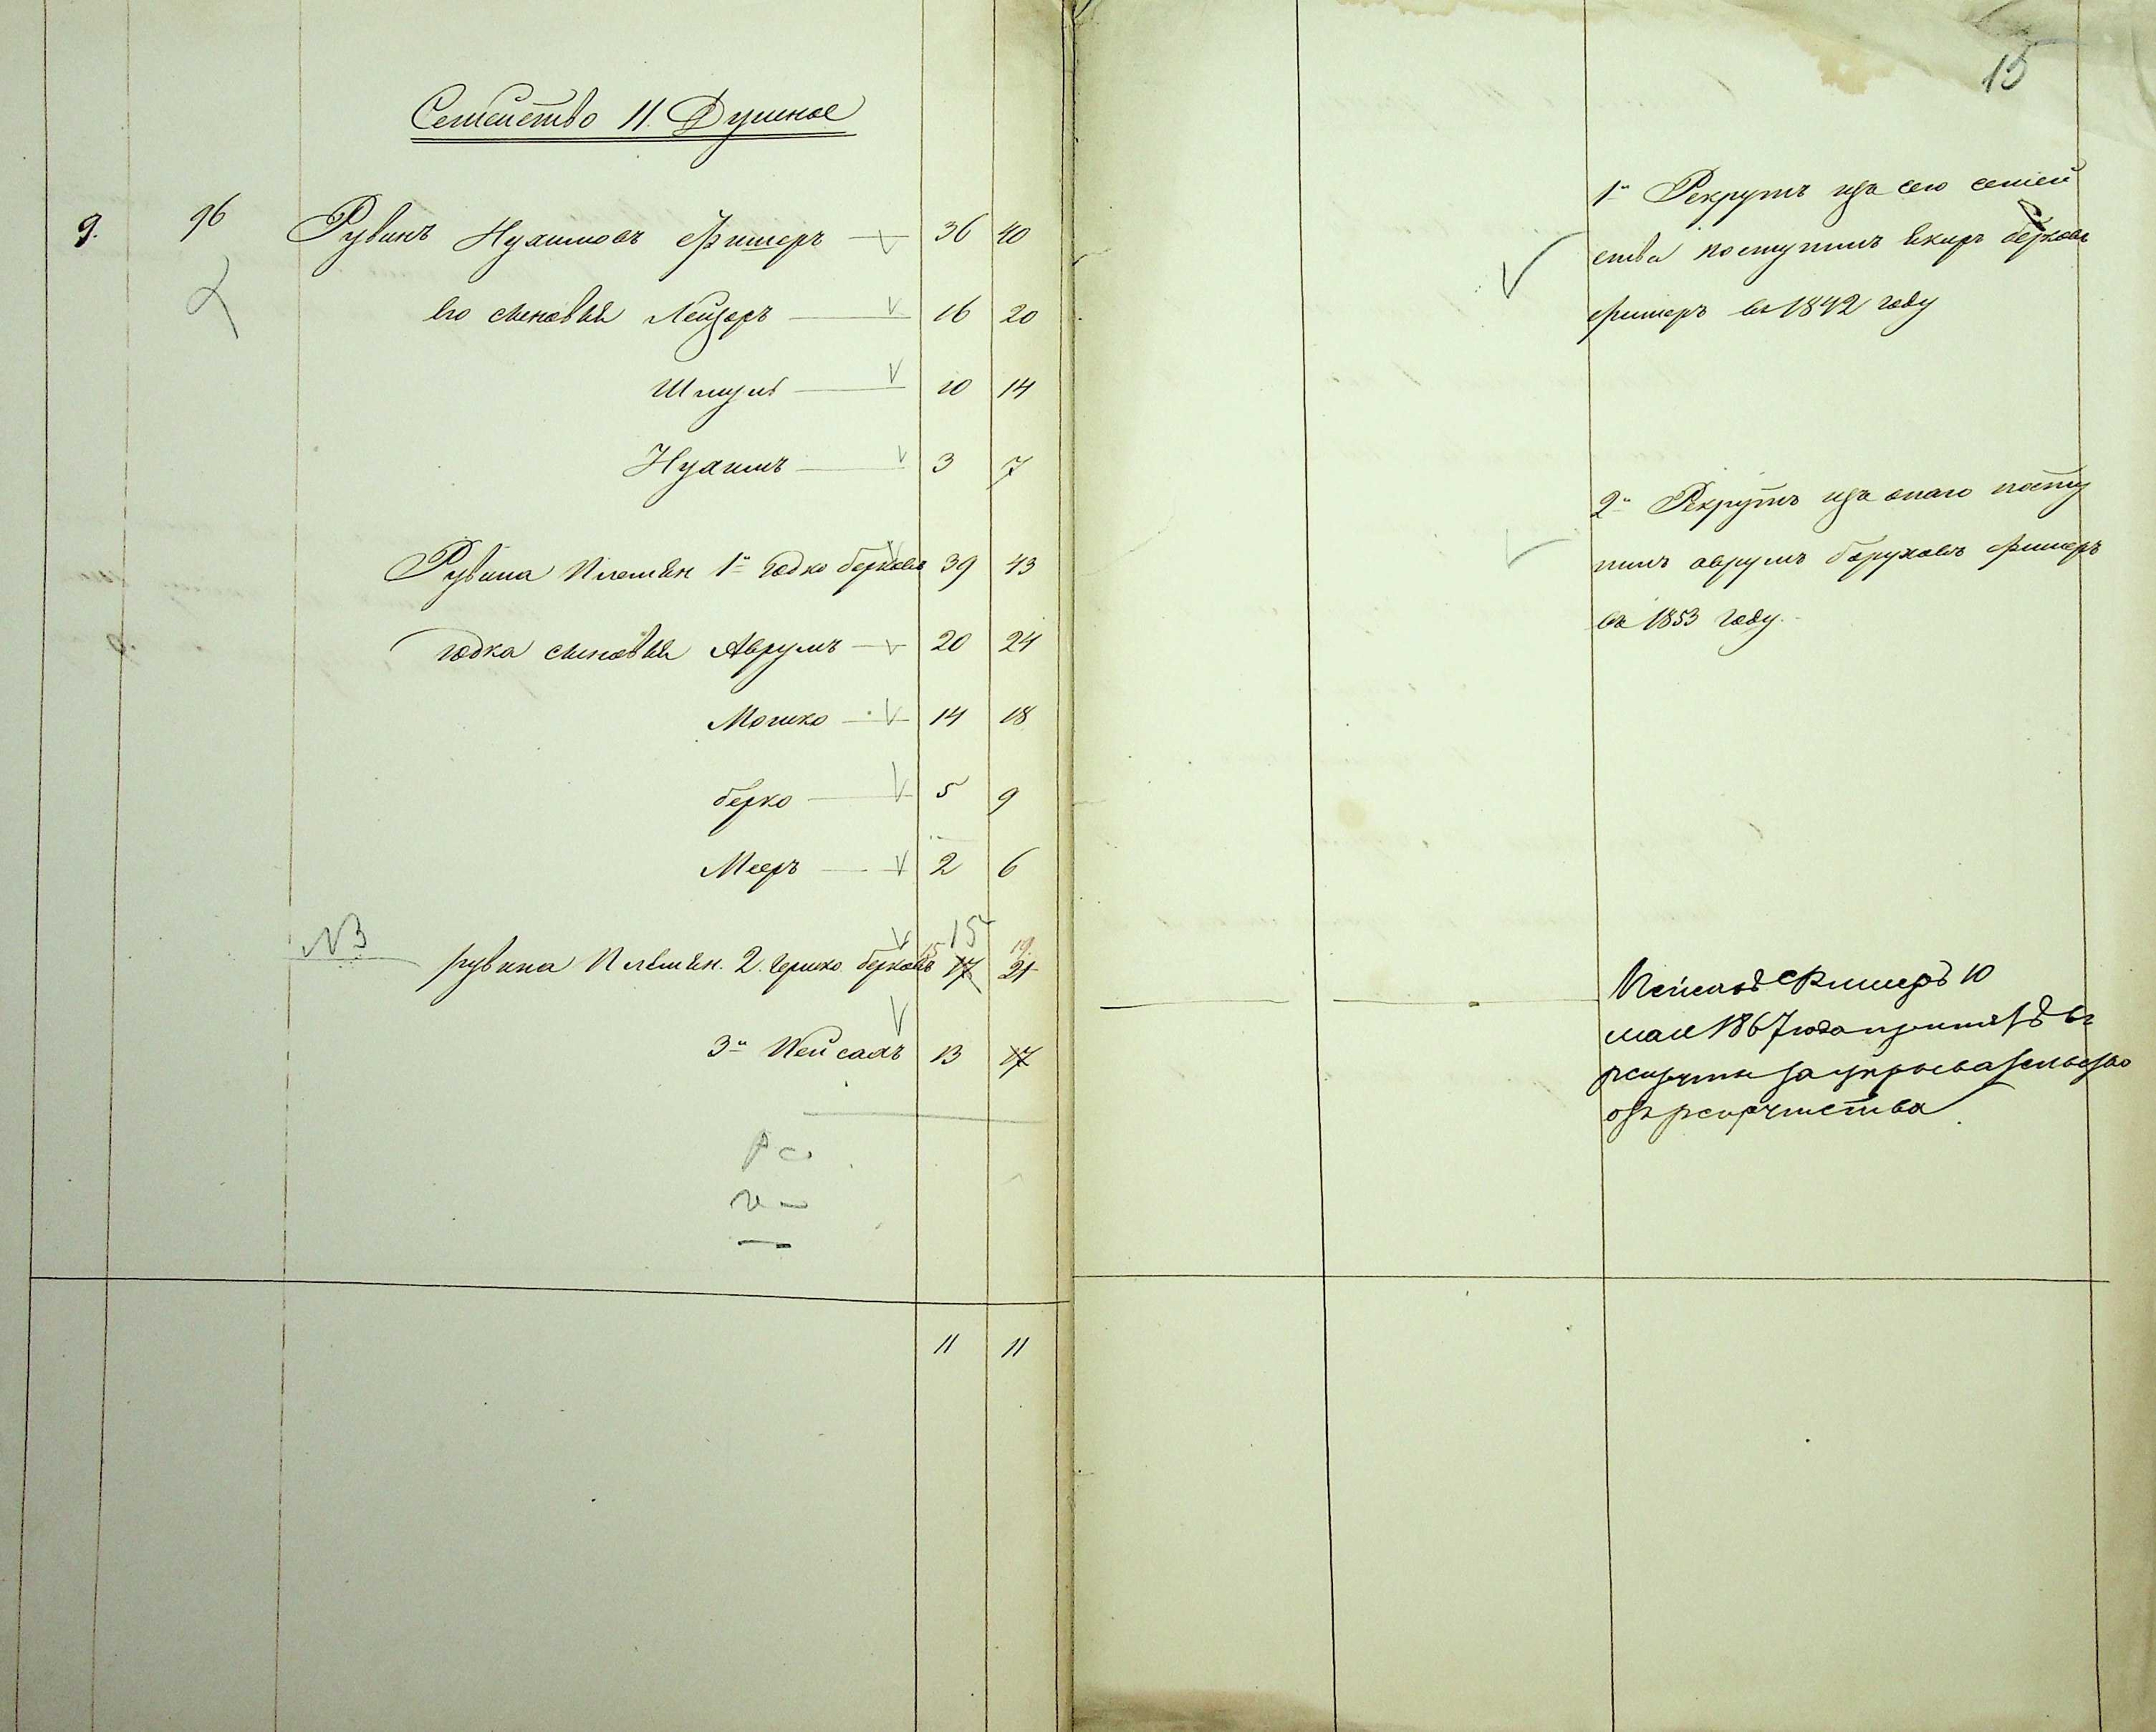 15
Семейство 11. Душное
9. 96 Рувинъ Нухимовъ Фишеръ 36 40
его сыновья Лейзоръ 16 20
Шмуль 10 14
Нухимъ 3 7
Рувина племян 1й Іодко берковъ 39 43
Іодка сыновья Аврумъ 20 24
Мошко 14 18
берко 5 9
Мееръ 2 6
15
N3 рувина племян. 2. Гершко берковъ 15 17 19 21
3й Пейсахъ 13 17
11 11
1й Рекрутъ изъ сего семей
ства поступилъ Берковъ
Фишеръ въ 1842 году
2й Рекрутъ изъ онаго посту
пилъ аврумъ боруховъ Фишеръ
въ 1853 году.
Пейсахъ Фишеръ 10
мая 1867 года принятъ въ
рекруты за укрывательство
отъ рекрутства